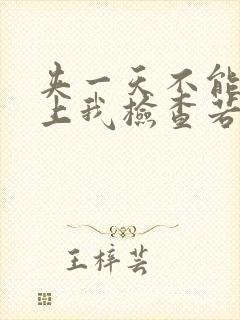 失一天不能
上我檢查若
王梓芸